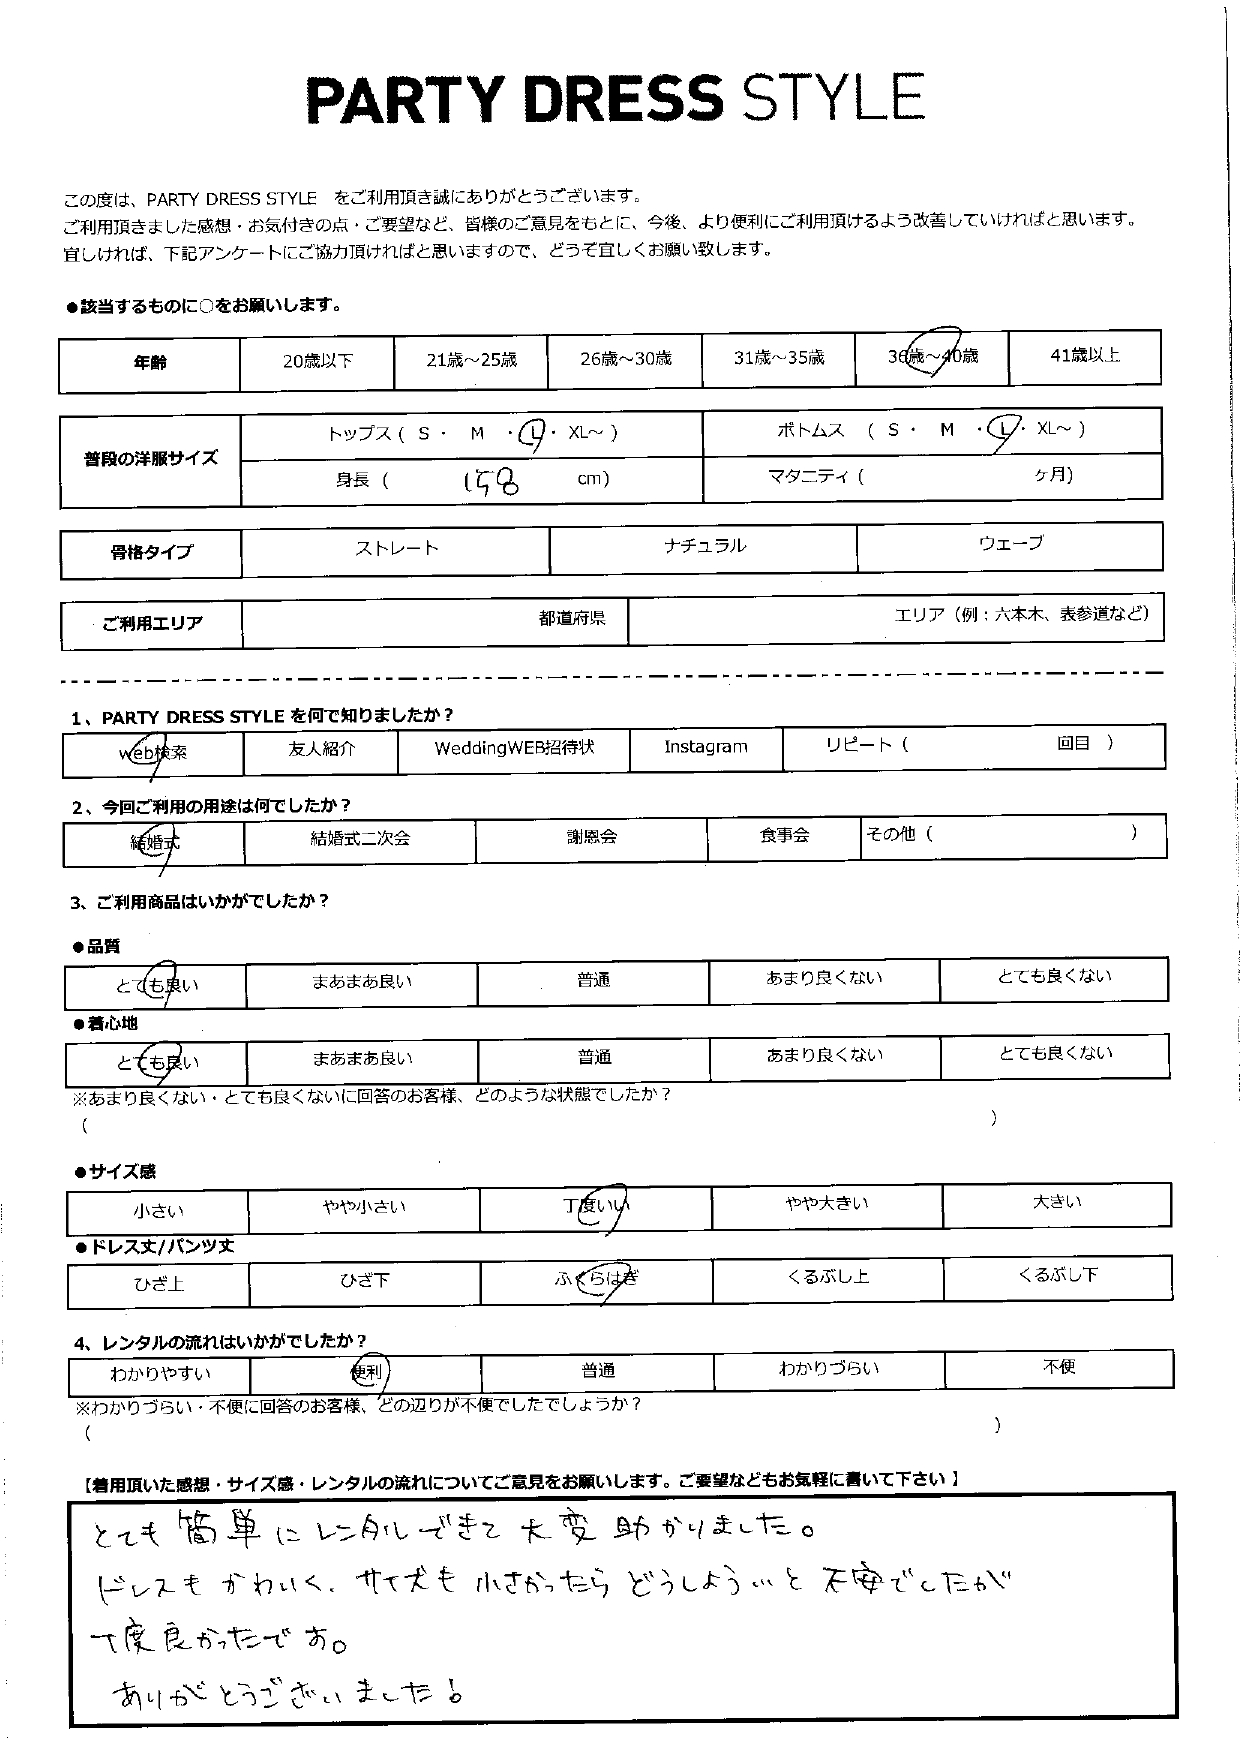 PARTY DRESS STYLE
この度は、PARTY DRESS STYLE をご利用頂き誠にありがとうございます。
ご利用頂きました感想・お気付きの点・ご要望など、皆様のご意見をもとに、今後、より便利にご利用頂けるよう改善していければと思います。
宜しければ、下記アンケートにご協力頂ければと思いますので、どうぞ宜しくお願い致します。
●該当するものに○をお願いします。
年齢 20歳以下 21歳～25歳 26歳～30歳 31歳～35歳 36歳～40歳 41歳以上
普段の洋服サイズ
トップス ( S ・ M ・ L ・ XL～ ) ボトムス ( S ・ M ・ L ・ XL～ )
身長 ( 158 cm) マタニティ ( ヶ月)
骨格タイプ ストレート ナチュラル ウェーブ
ご利用エリア 都道府県 エリア（例：六本木、表参道など）
1、PARTY DRESS STYLE を何で知りましたか？
web検索 友人紹介 WeddingWEB招待状 Instagram リピート ( 回目 )
2、今回ご利用の用途は何でしたか？
結婚式 結婚式二次会 謝恩会 食事会 その他 ( )
3、ご利用商品はいかがでしたか？
●品質
とても良い まあまあ良い 普通 あまり良くない とても良くない
●着心地
とても良い まあまあ良い 普通 あまり良くない とても良くない
※あまり良くない・とても良くないに回答のお客様、どのような状態でしたか？
( )
●サイズ感
小さい やや小さい 丁度いい やや大きい 大きい
●ドレス丈/パンツ丈
ひざ上 ひざ下 ふくらはぎ くるぶし上 くるぶし下
4、レンタルの流れはいかがでしたか？
わかりやすい 便利 普通 わかりづらい 不便
※わかりづらい・不便に回答のお客様、どの辺りが不便でしたでしょうか？
( )
【着用頂いた感想・サイズ感・レンタルの流れについてご意見をお願いします。ご要望などもお気軽に書いて下さい】
とても簡単にレンタルできて大変助かりました。
ドレスもかわいく、サイズも小さかったらどうしよう…と不安でしたが
丁度良かったです。
ありがとうございました！